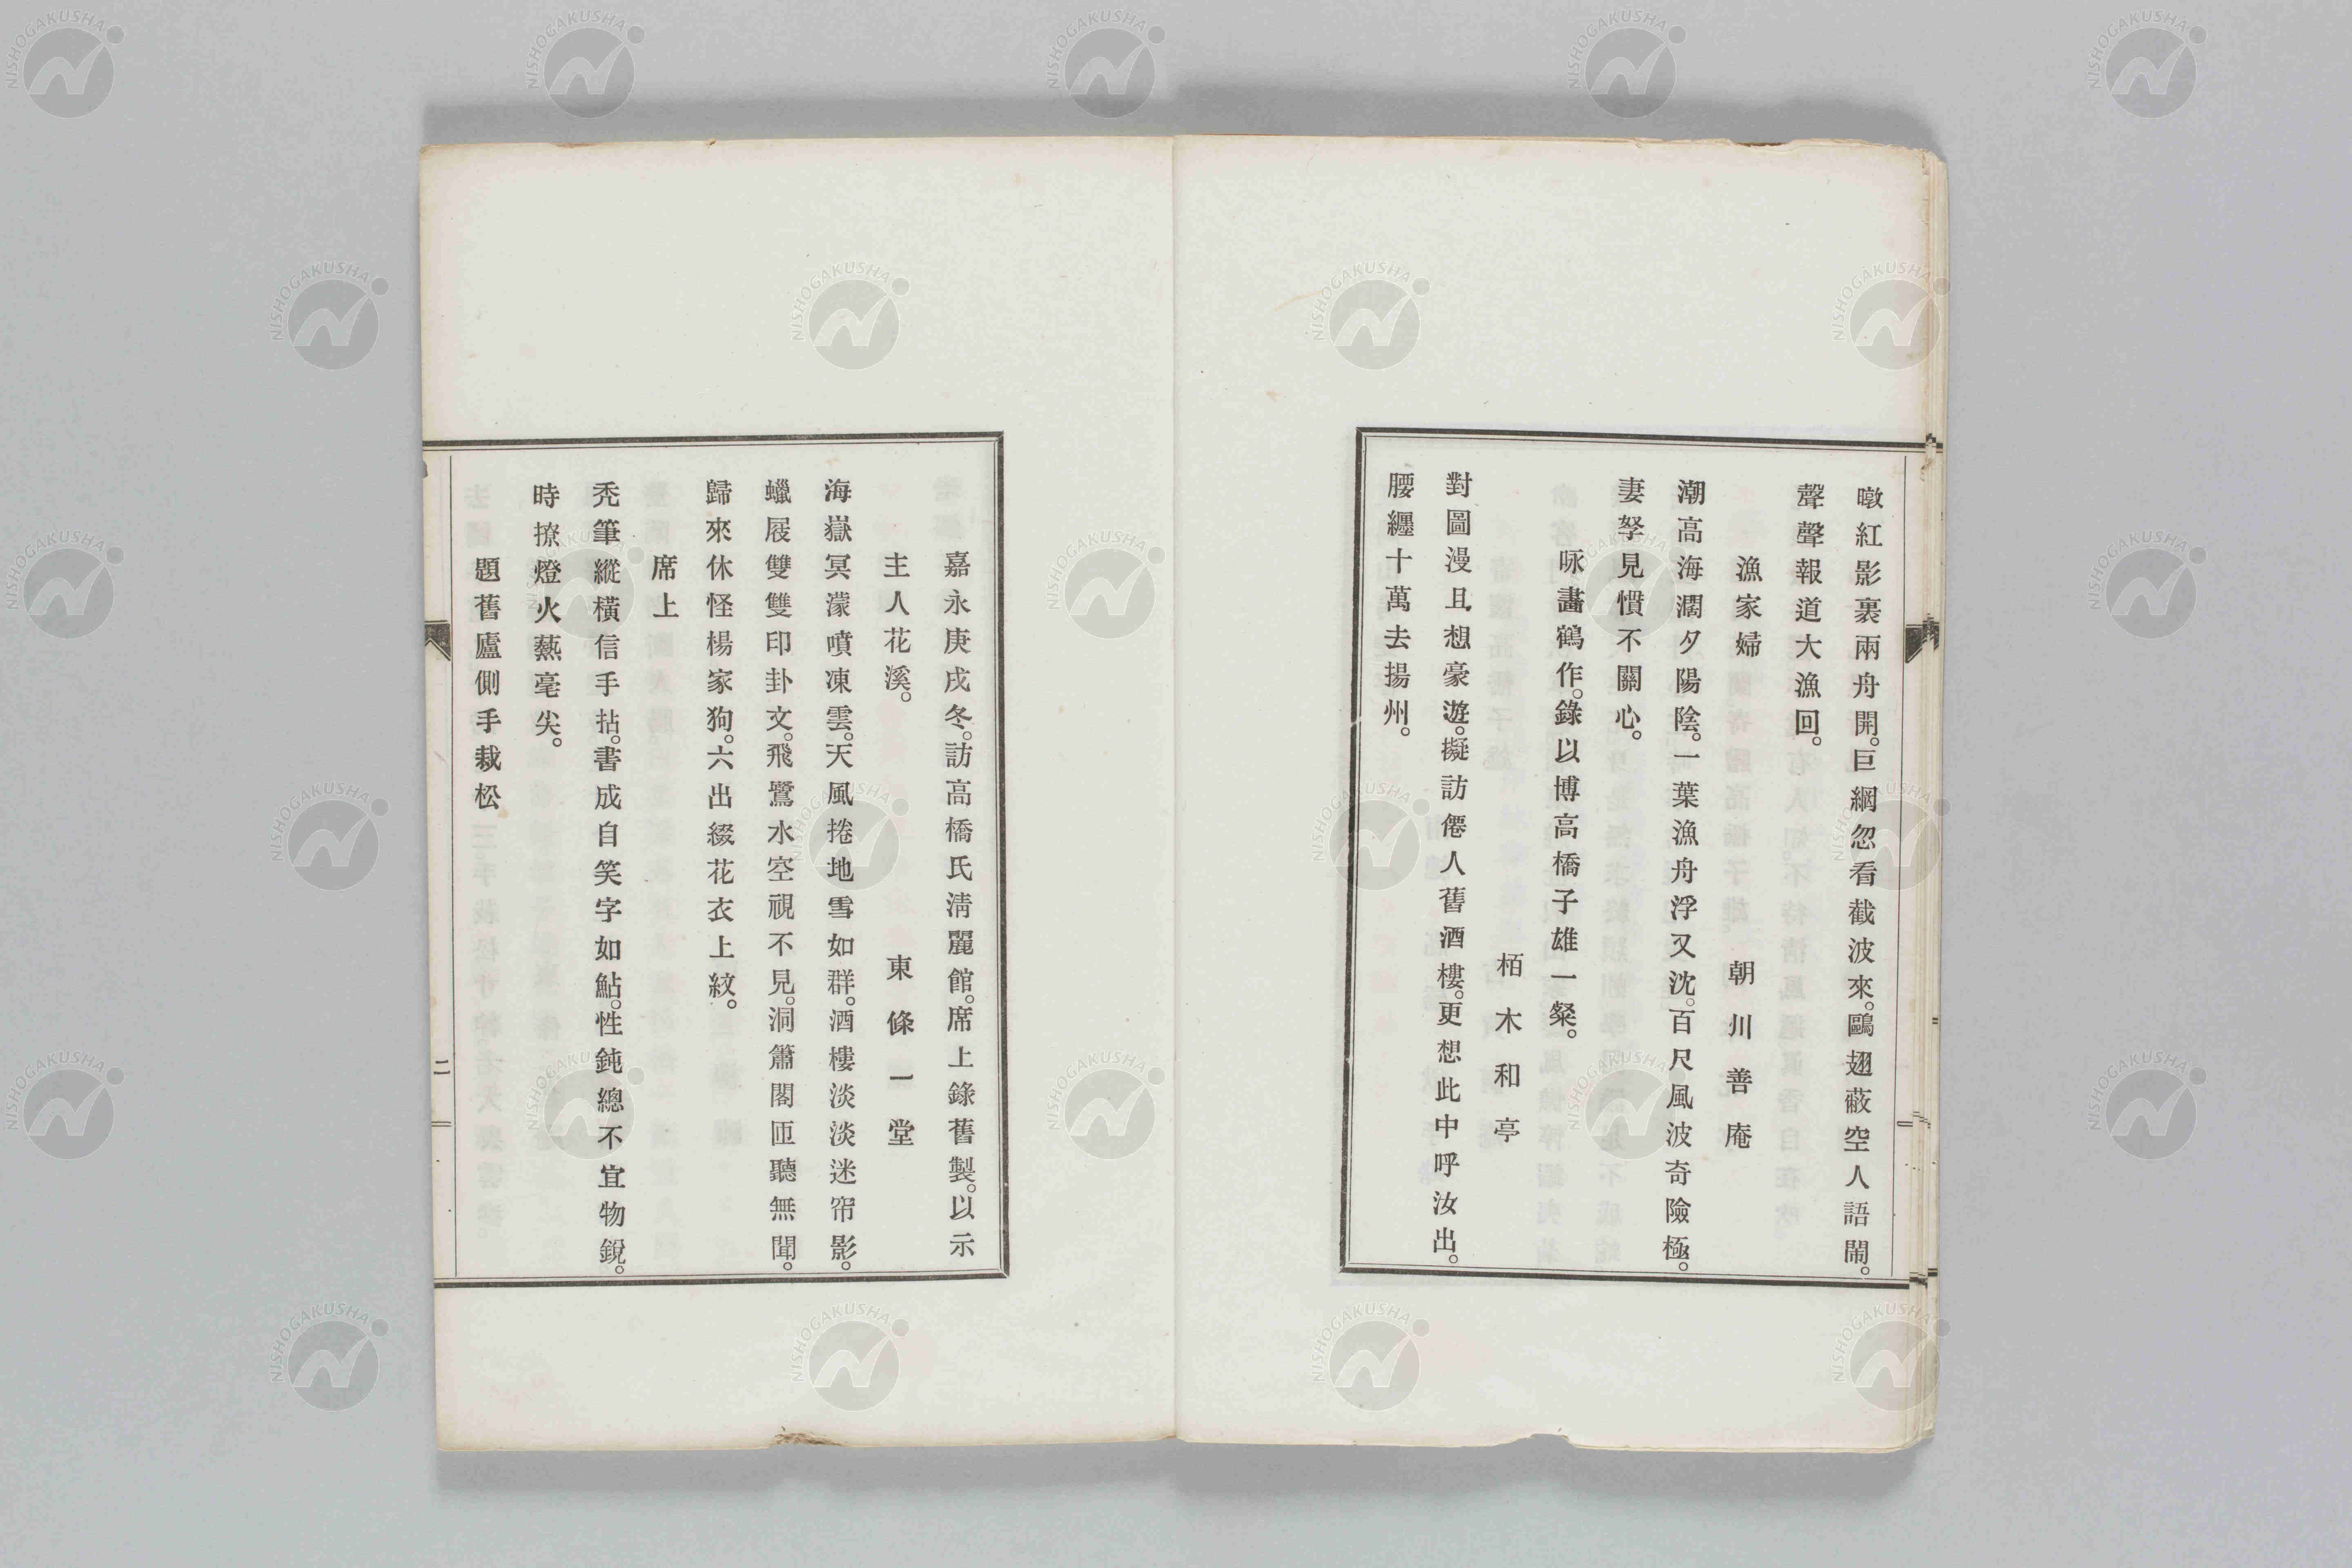 暾紅影裏兩舟開。巨網忽看截波來。鷗翅蔽空人語鬧。
聲聲報道大漁回。
漁家婦　朝川善庵
潮高海濶夕陽陰。一葉漁舟浮又沈。百尺風波奇險極。
妻孥見慣不關心。
咏畵鶴作。錄以博高橋子雄一粲。
栢木和亭
對圖漫且想豪遊。擬訪僊人舊酒樓。更想此中呼汝出。
腰纏十萬去揚州。
嘉永庚戌冬。訪高橋氏淸麗館。席上錄舊製。以示
主人花溪。　東條一堂
海嶽冥濛噴凍雲。天風捲地雪如群。酒樓淡淡迷帘影。
蠟屐雙雙印卦文。飛鷺水空視不見。洞簫閣匝聽無聞。
歸來休怪楊家狗。六出綴花衣上紋。
席上
禿筆縱橫信手拈。書成自笑字如鮎。性鈍總不宜物銳。
時撩燈火爇毫尖。
題舊廬側手栽松
二
NISHOGAKUSHA